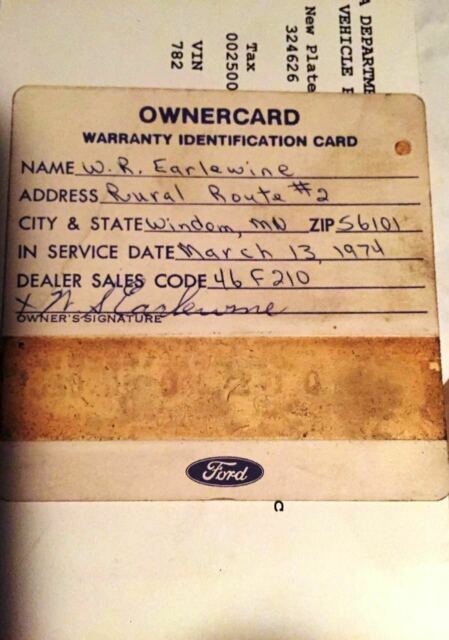 A DEPARTM
VEHICLE
New Plate
324626
Tax
002500
VIN
782
OWNERCARD
WARRANTY IDENTIFICATION CARD
NAME W. R. Earlewine
ADDRESS Rural Route #2
CITY & STATE Windom, MN ZIP 56101
IN SERVICE DATE March 13, 1974
DEALER SALES CODE 46F210
X W S Earlewine
OWNER'S SIGNATURE
Ford
C